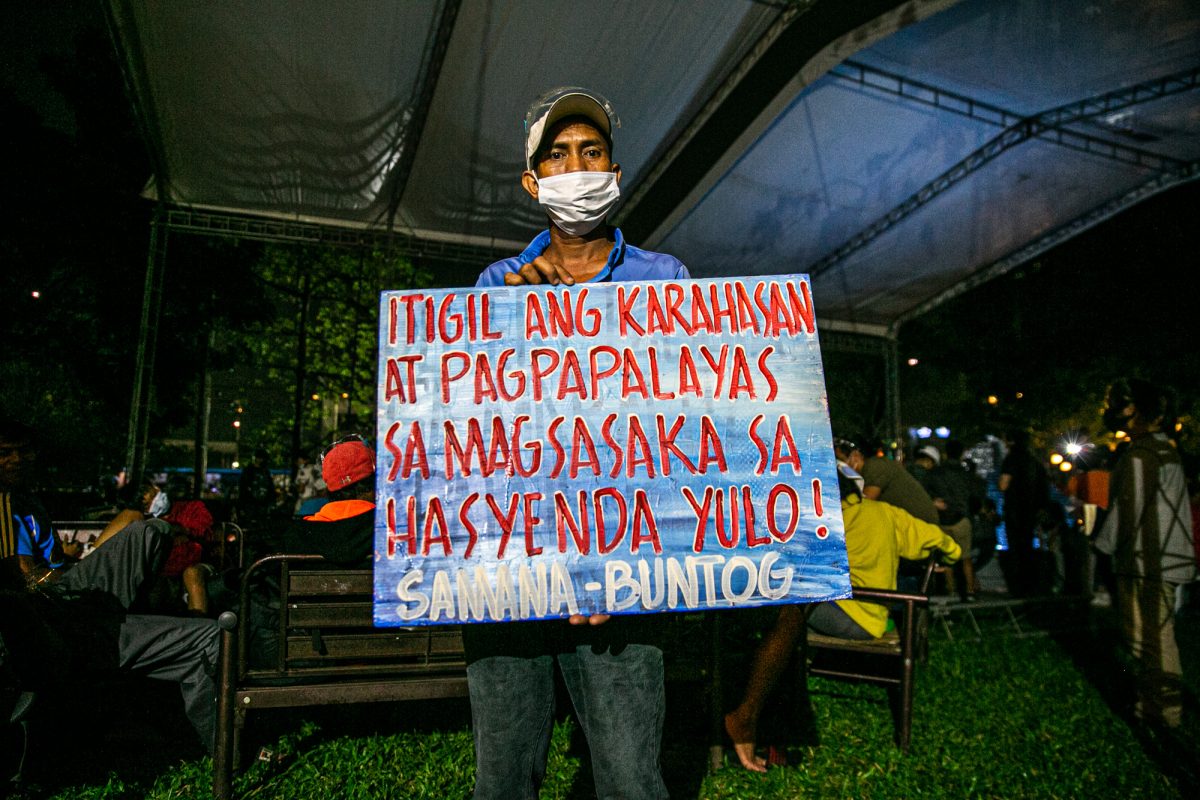 ITIGIL ANG KARAHASAN
AT PAGPAPALAYAS
SA MAGSASAKA SA
HASYENDA YULO!
SAMANA-BUNTOG